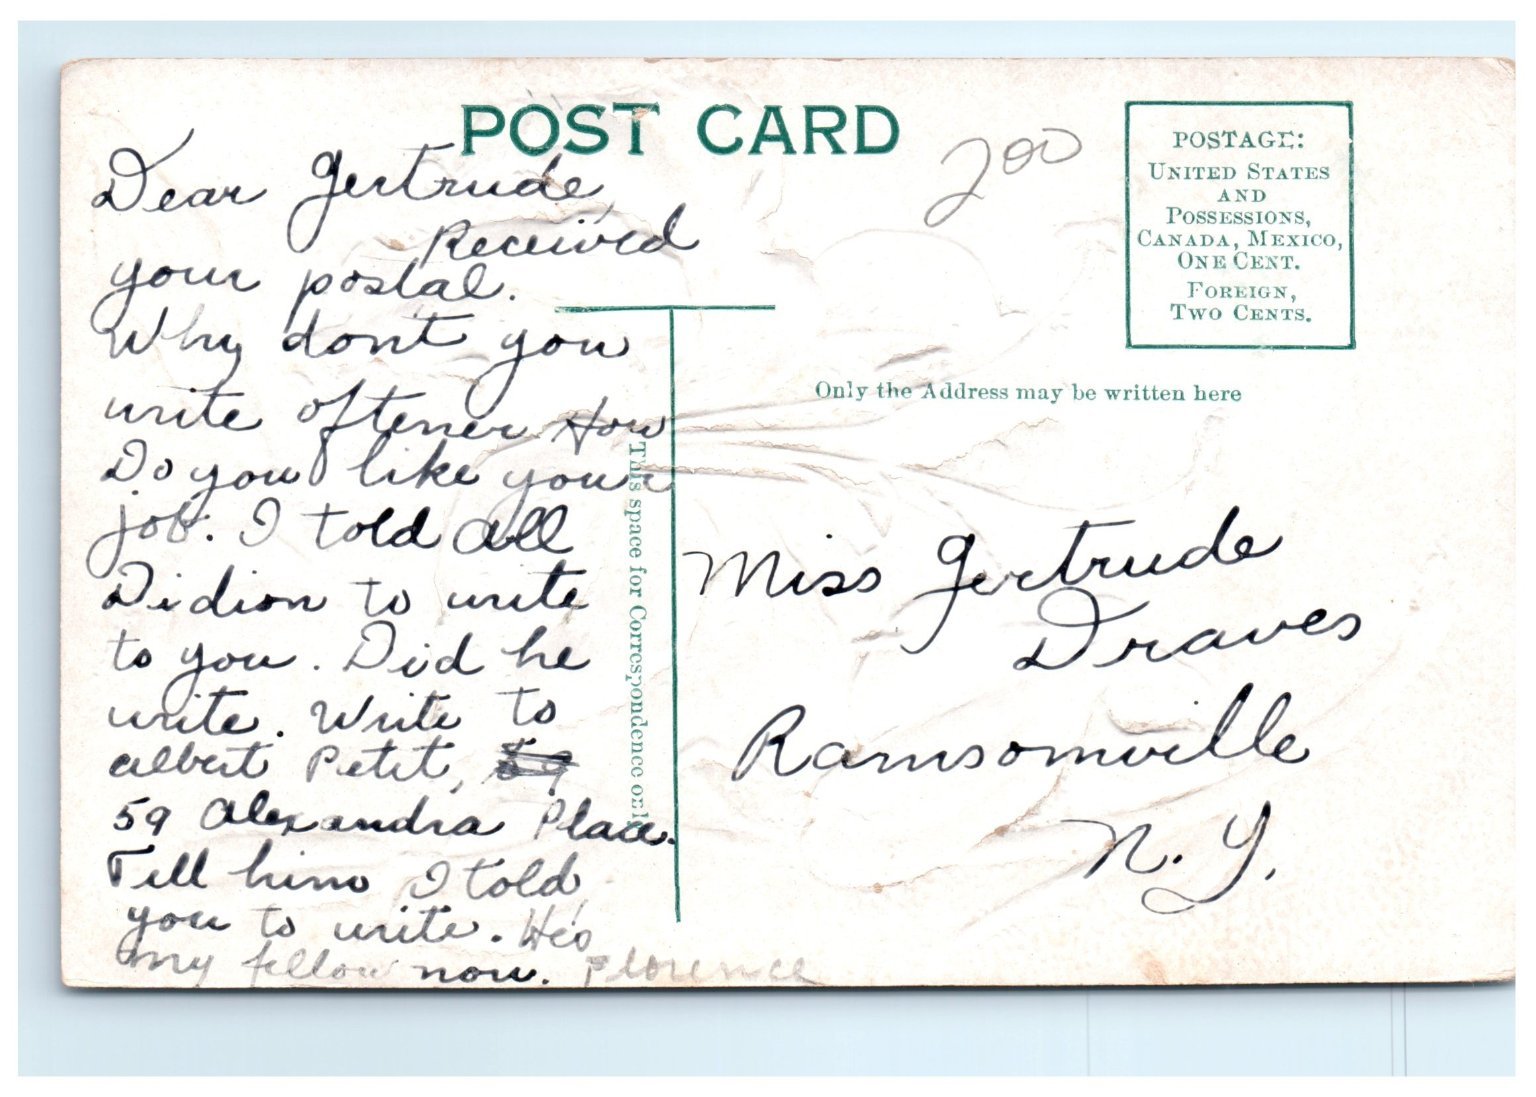 POST CARD
200
POSTAGE:
UNITED STATES
AND
POSSESSIONS,
CANADA, MEXICO,
ONE CENT.
FOREIGN,
TWO CENTS.
Only the Address may be written here
This space for Correspondence only
Dear Gertrude,
Received
your postal.
Why dont you
write oftener How
Do you like your
job. I told all
Didion to write
to you. Did he
write. Write to
albert Petit, 59
59 Alexandra Place.
Tell him I told
you to write. He's
my fellow now. Florence
Miss Gertrude
Draves
Ramsomville
N. Y.